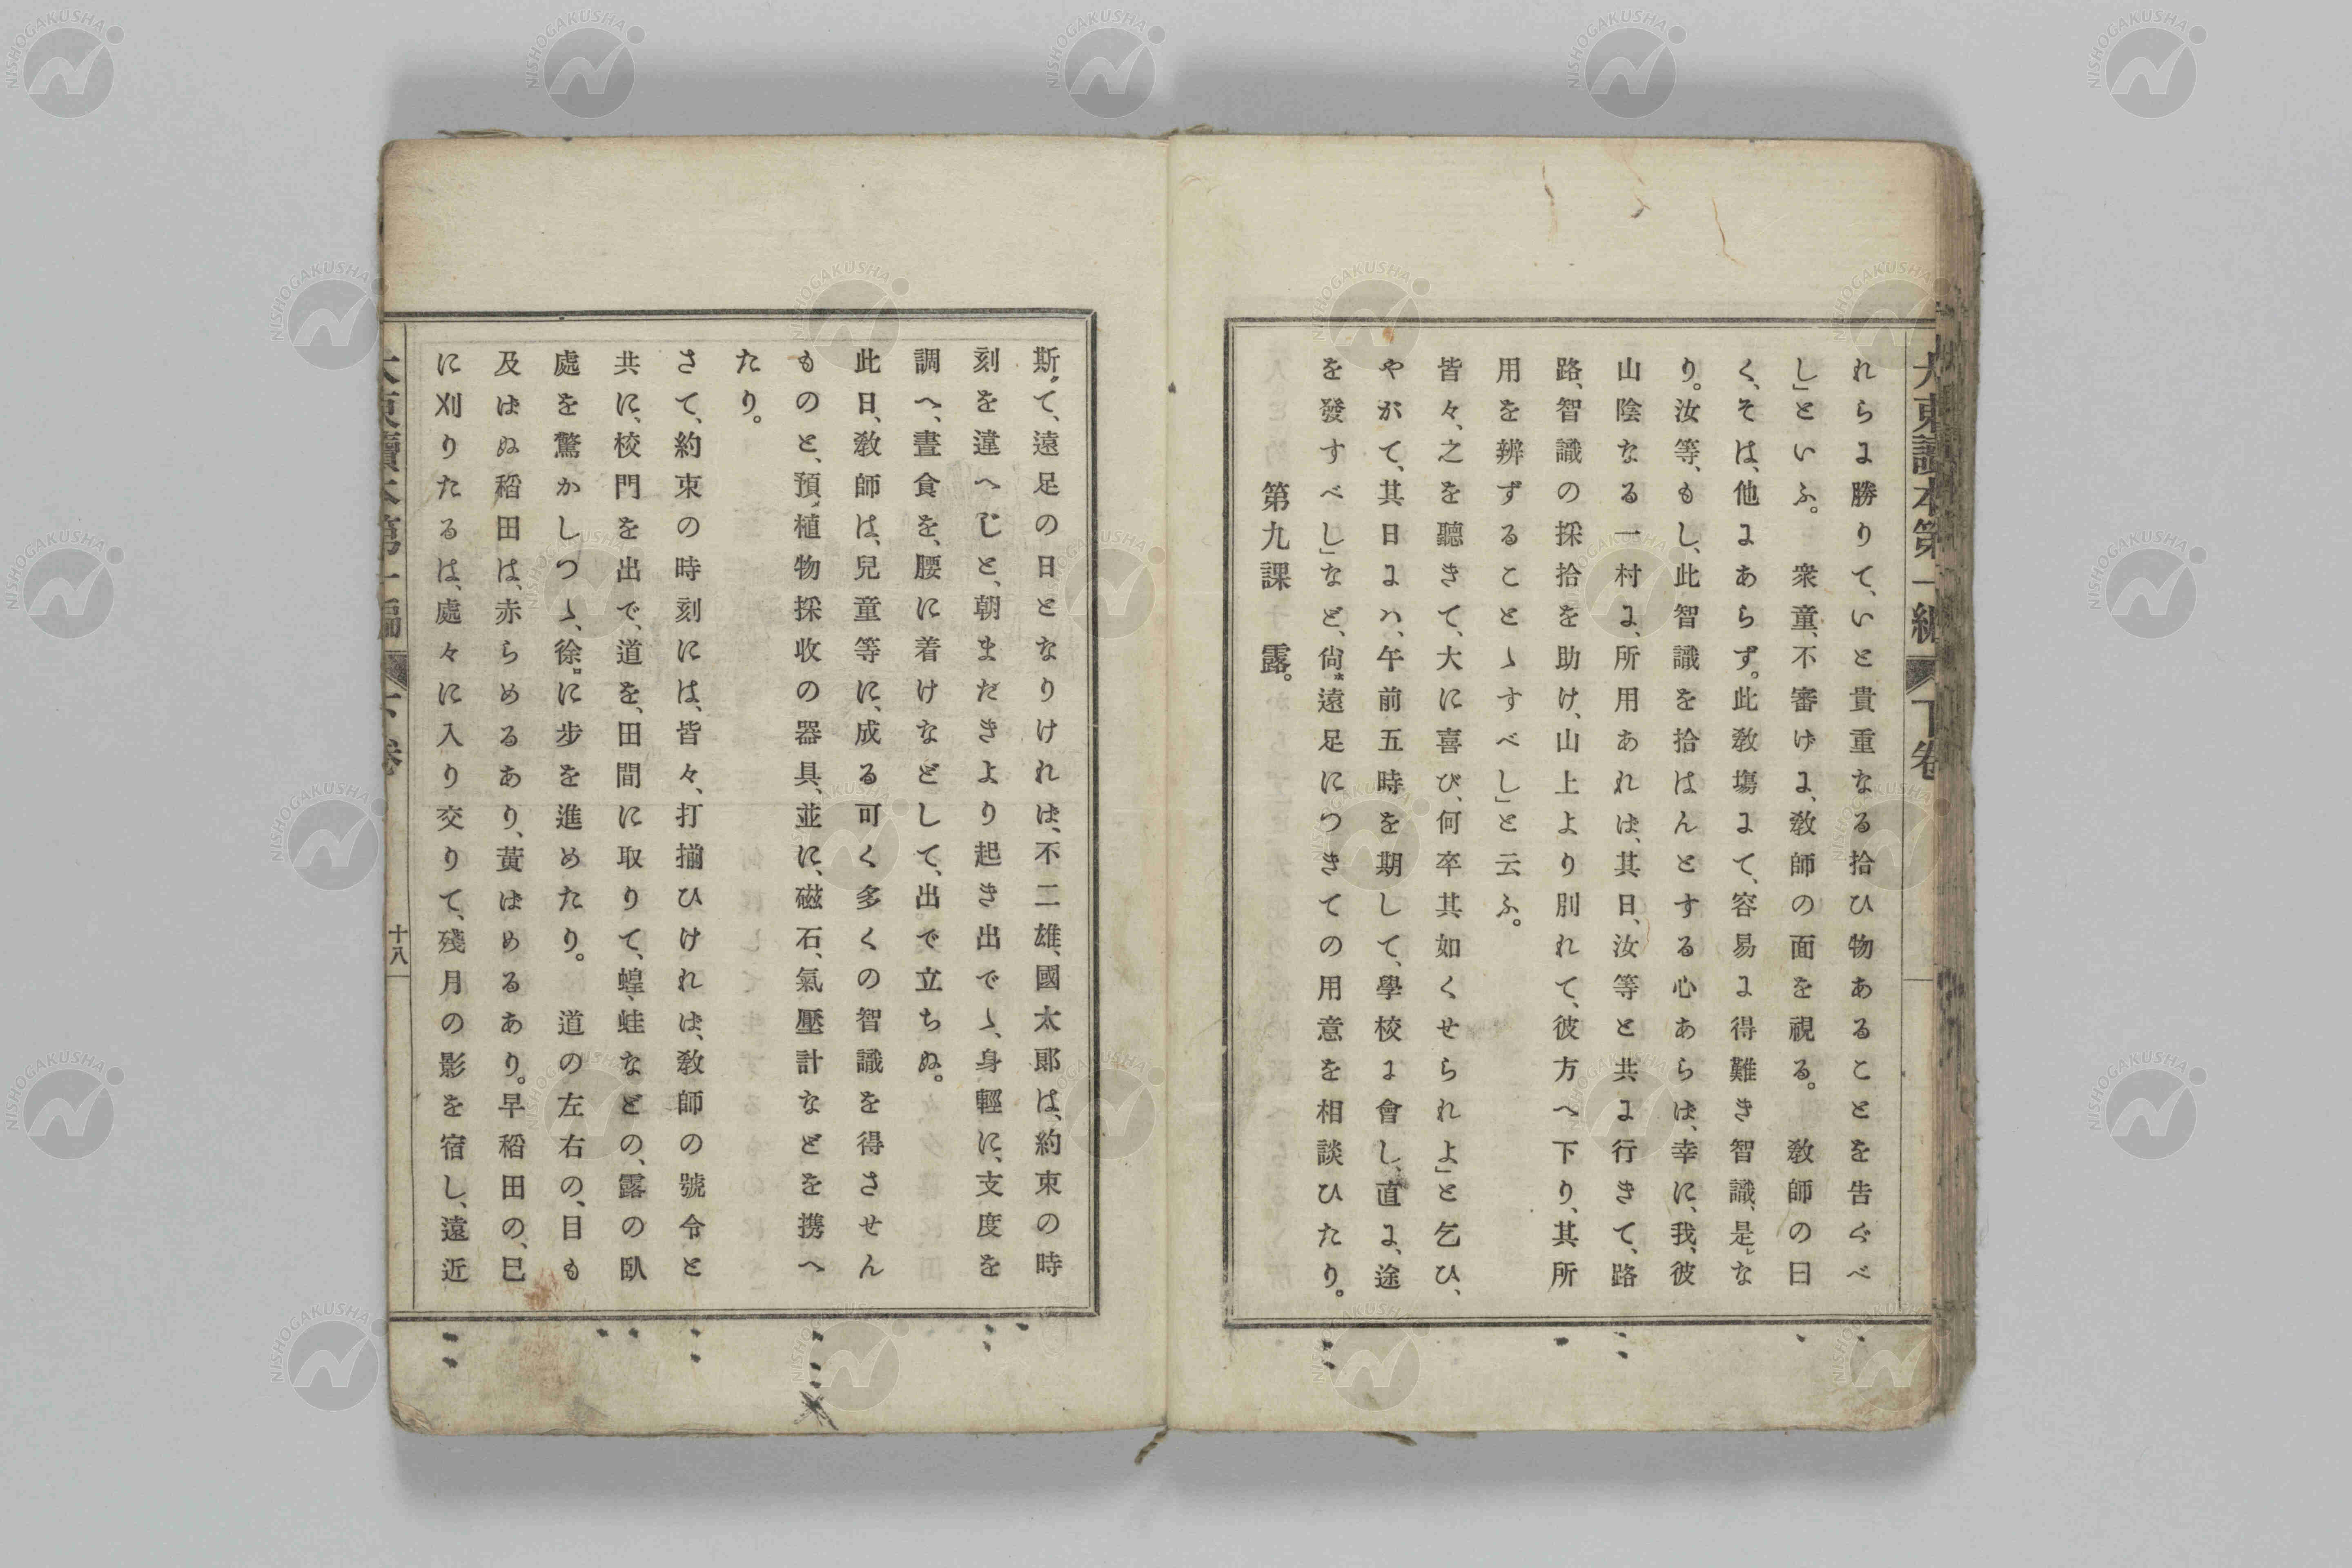 大東讀本第一編 下卷
れらに勝りて、いと貴重なる拾ひ物あることを告ぐべ
し」といふ。 衆童、不審げに、敎師の面を視る。 敎師の曰
く、そは、他にあらず。此敎塲にて、容易に得難き智識、是な
り。汝等、もし、此智識を拾はんとする心あらは、幸に、我、彼
山陰なる一村に、所用あれは、其日、汝等と共に行きて、路
路、智識の採拾を助け、山上より別れて、彼方へ下り、其所
用を辨ずることゝすべし」と云ふ。
皆々、之を聽きて、大に喜び、何卒其如くせられよ」と乞ひ、
やがて、其日にハ、午前五時を期して、學校に會し、直に、途
を發すべし」など、尙遠足につきての用意を相談ひたり。
第九課 露。
斯て、遠足の日となりけれは、不二雄、國太郎は、約束の時
刻を違へじと、朝まだきより起き出でゝ、身輕に、支度を
調へ、晝食を、腰に着けなどして、出で立ちぬ。
此日、敎師は、兒童等に、成る可く多くの智識を得させん
ものと、預植物採收の器具、並に、磁石、氣壓計などを携へ
たり。
さて、約束の時刻には、皆々、打揃ひけれは、敎師の號令と
共に、校門を出で、道を、田間に取りて、蝗、蛙などの、露の臥
處を驚かしつゝ、徐に步を進めたり。 道の左右の、目も
及はぬ稻田は、赤らめるあり、黃はめるあり。早稻田の、已
に刈りたるは、處々に入り交りて、殘月の影を宿し、遠近
大東讀本第一編 下卷
十八
NISHOGAKUSHA